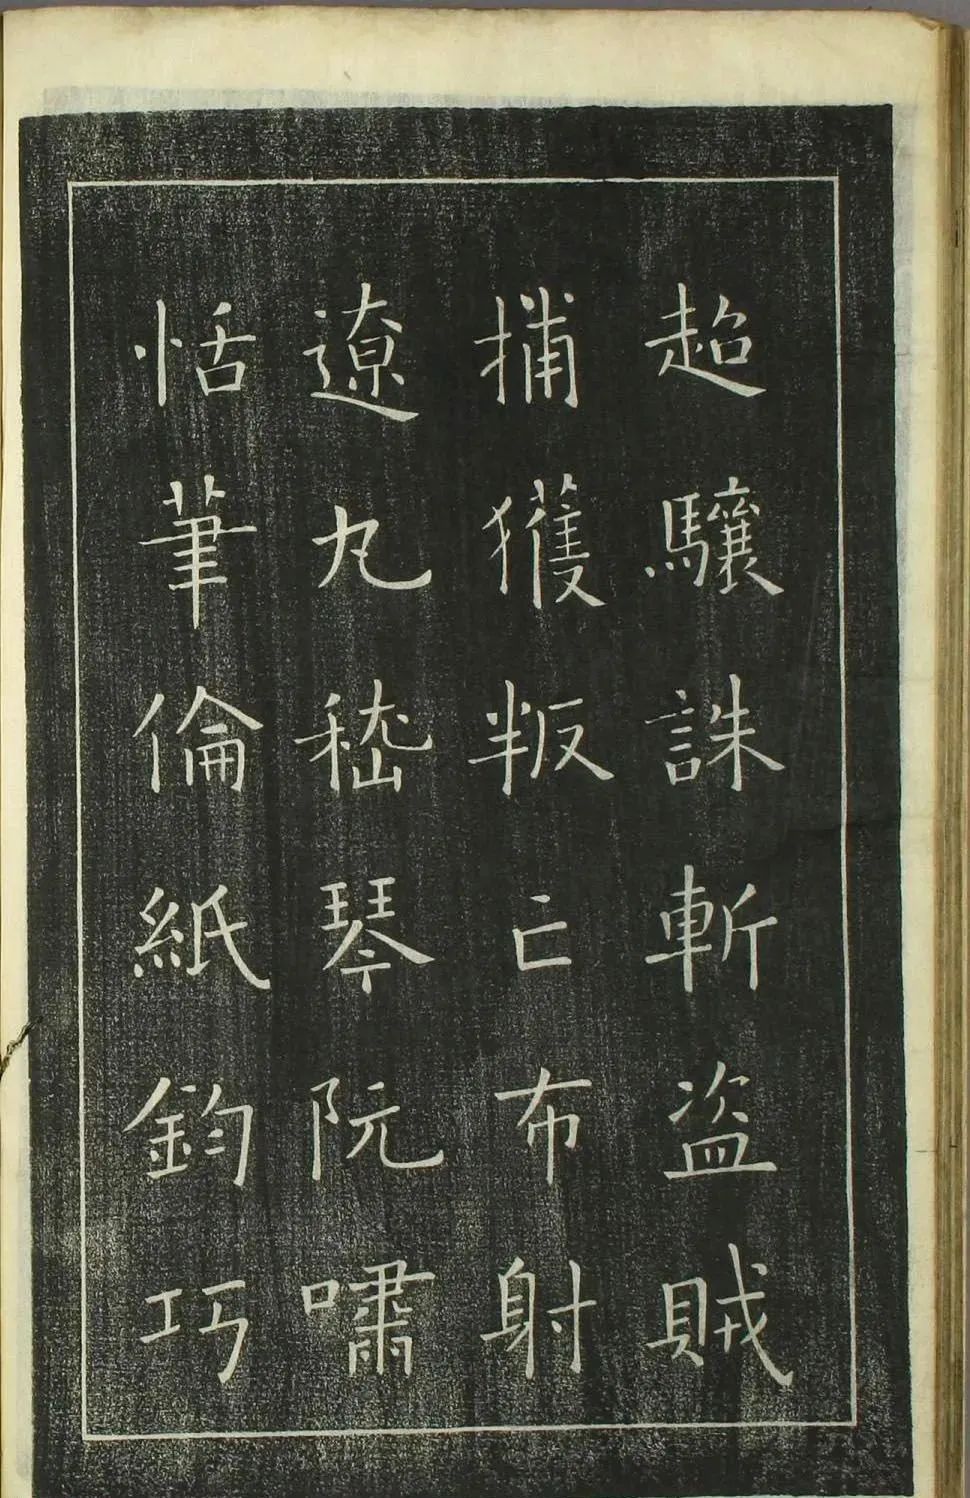 超驤誅斬盗賊
捕獲叛亡布射
遼丸嵇琴阮嘯
恬筆倫紙鈞巧